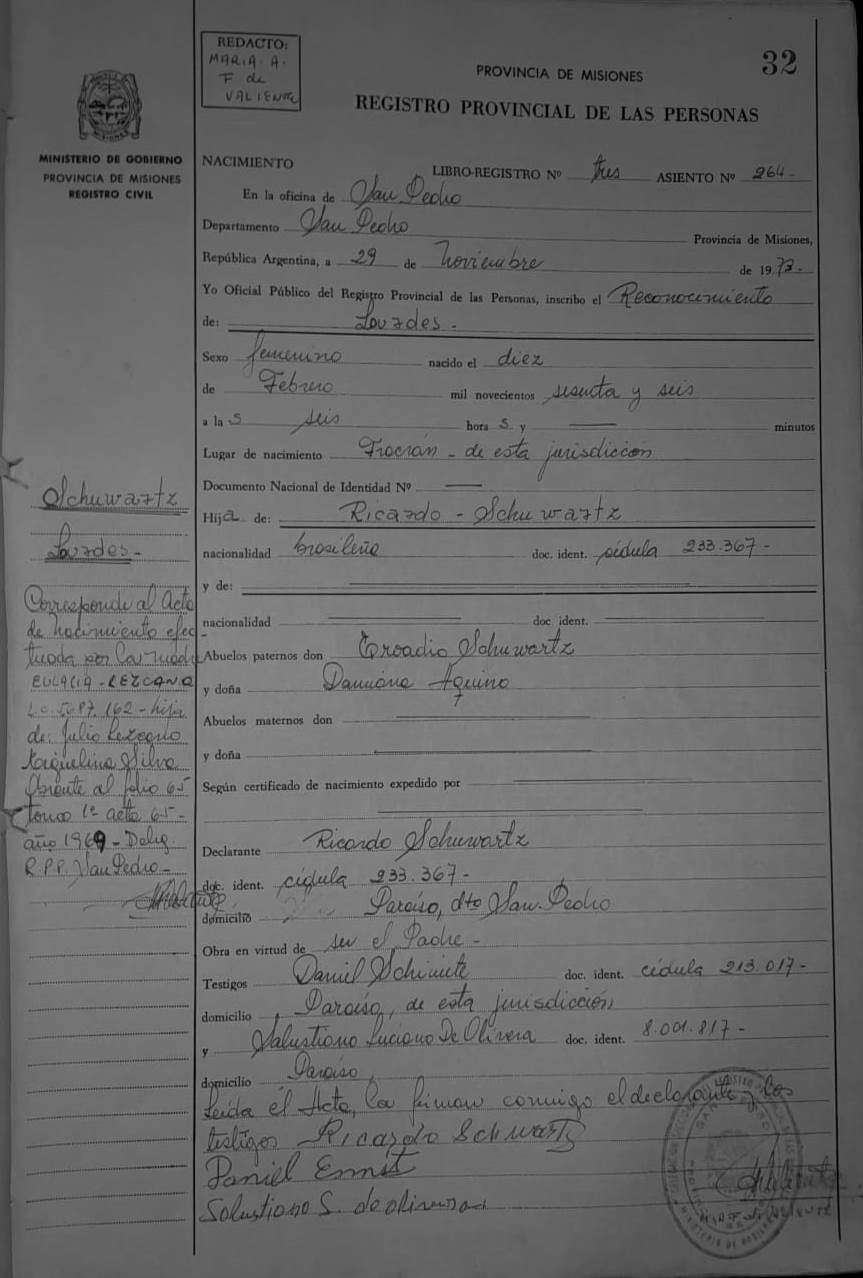 REDACTO:
MARIA. A.
F de
VALIENTE
32
PROVINCIA DE MISIONES
REGISTRO PROVINCIAL DE LAS PERSONAS
MINISTERIO DE GOBIERNO
PROVINCIA DE MISIONES
REGISTRO CIVIL
NACIMIENTO
LIBRO-REGISTRO Nº tres ASIENTO Nº 264-
En la oficina de San Pedro
Departamento San Pedro Provincia de Misiones,
República Argentina, a 29 de Noviembre de 1973.-
Yo Oficial Público del Registro Provincial de las Personas, inscribo el Reconocimiento
de: Lourdes.-
Sexo femenino nacido el diez
de Febrero mil novecientos sesenta y seis
a la s seis hora s y minutos
Lugar de nacimiento Fracrán - de esta jurisdicción
Documento Nacional de Identidad Nº
Hija de: Ricardo - Schuwartz
nacionalidad brasileña doc. ident. cédula 233.367-
y de:
nacionalidad doc ident.
Abuelos paternos don Schuwartz
y doña Damiana Aquino
Abuelos maternos don
y doña
Según certificado de nacimiento expedido por
Declarante Ricardo Schuwartz
doc. ident. cédula 233.367-
domicilio Paraíso, dto San Pedro
Obra en virtud de ser el Padre-
Testigos Daniel doc. ident. cédula 213.017-
domicilio Paraíso, de esta jurisdicción
y Salustiano Luciano De Olivera doc. ident. 8.001.817-
domicilio Paraíso
Leída el Acta, la firman conmigo el declarante y los
testigos Ricardo Schwartz
Daniel
Salustiano S. de
Schuwartz
Lourdes-
Corresponde al Acta
de nacimiento efec-
tuada por la madre
EULACIA - LEZCANO
L.C. 5687.162 - hija
de: Julio Lezcano
Silva
Obrante al folio 65
tomo 1º acta 65-
año 1969 - Deleg.
R.P.P. San Pedro-